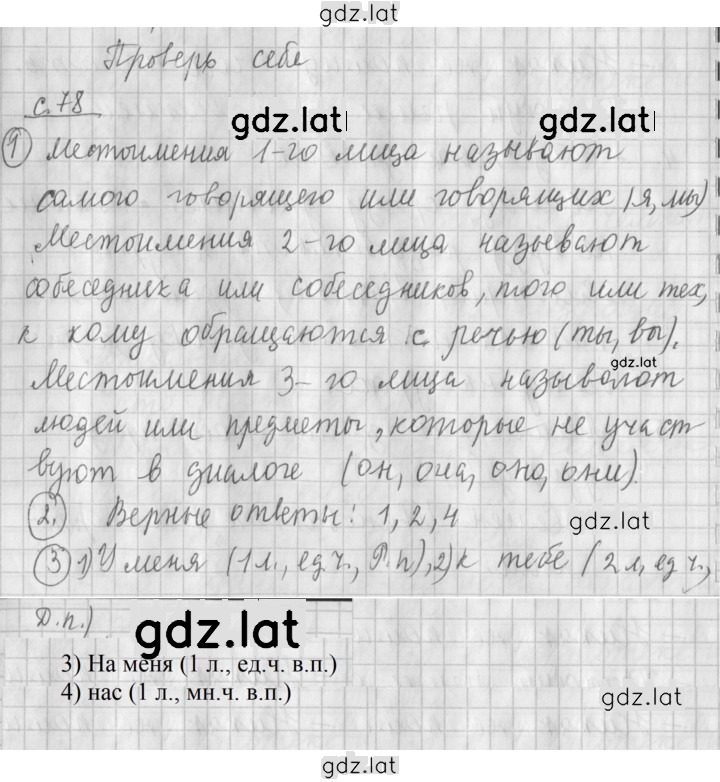 gdz.lat
Проверь себе
с. 78
gdz.lat gdz.lat
1 Местоимения 1-го лица называют
самого говорящего или говорящих (я, мы)
Местоимения 2-го лица называют
собеседника или собеседников, того или тех,
к кому обращаются с речью (ты, вы).
gdz.lat
Местоимения 3-го лица называют
людей или предметы, которые не участ
вуют в диалоге (он, она, оно, они).
2. Верные ответы: 1, 2, 4
gdz.lat
3 1) У меня (1 л., ед.ч., Р.п), 2) к тебе (2 л, ед ч.,
Д.п.)
gdz.lat
3) На меня (1 л., ед.ч. в.п.)
4) нас (1 л., мн.ч. в.п.)
gdz.lat
gdz.lat